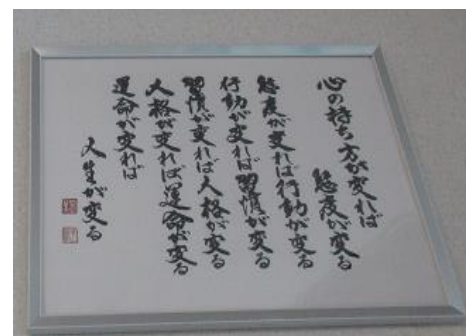 心の持ち方が変れば
態度が変る
態度が変れば行動が変る
行動が変れば習慣が変る
習慣が変れば人格が変る
人格が変れば運命が変る
運命が変れば
人生が変る